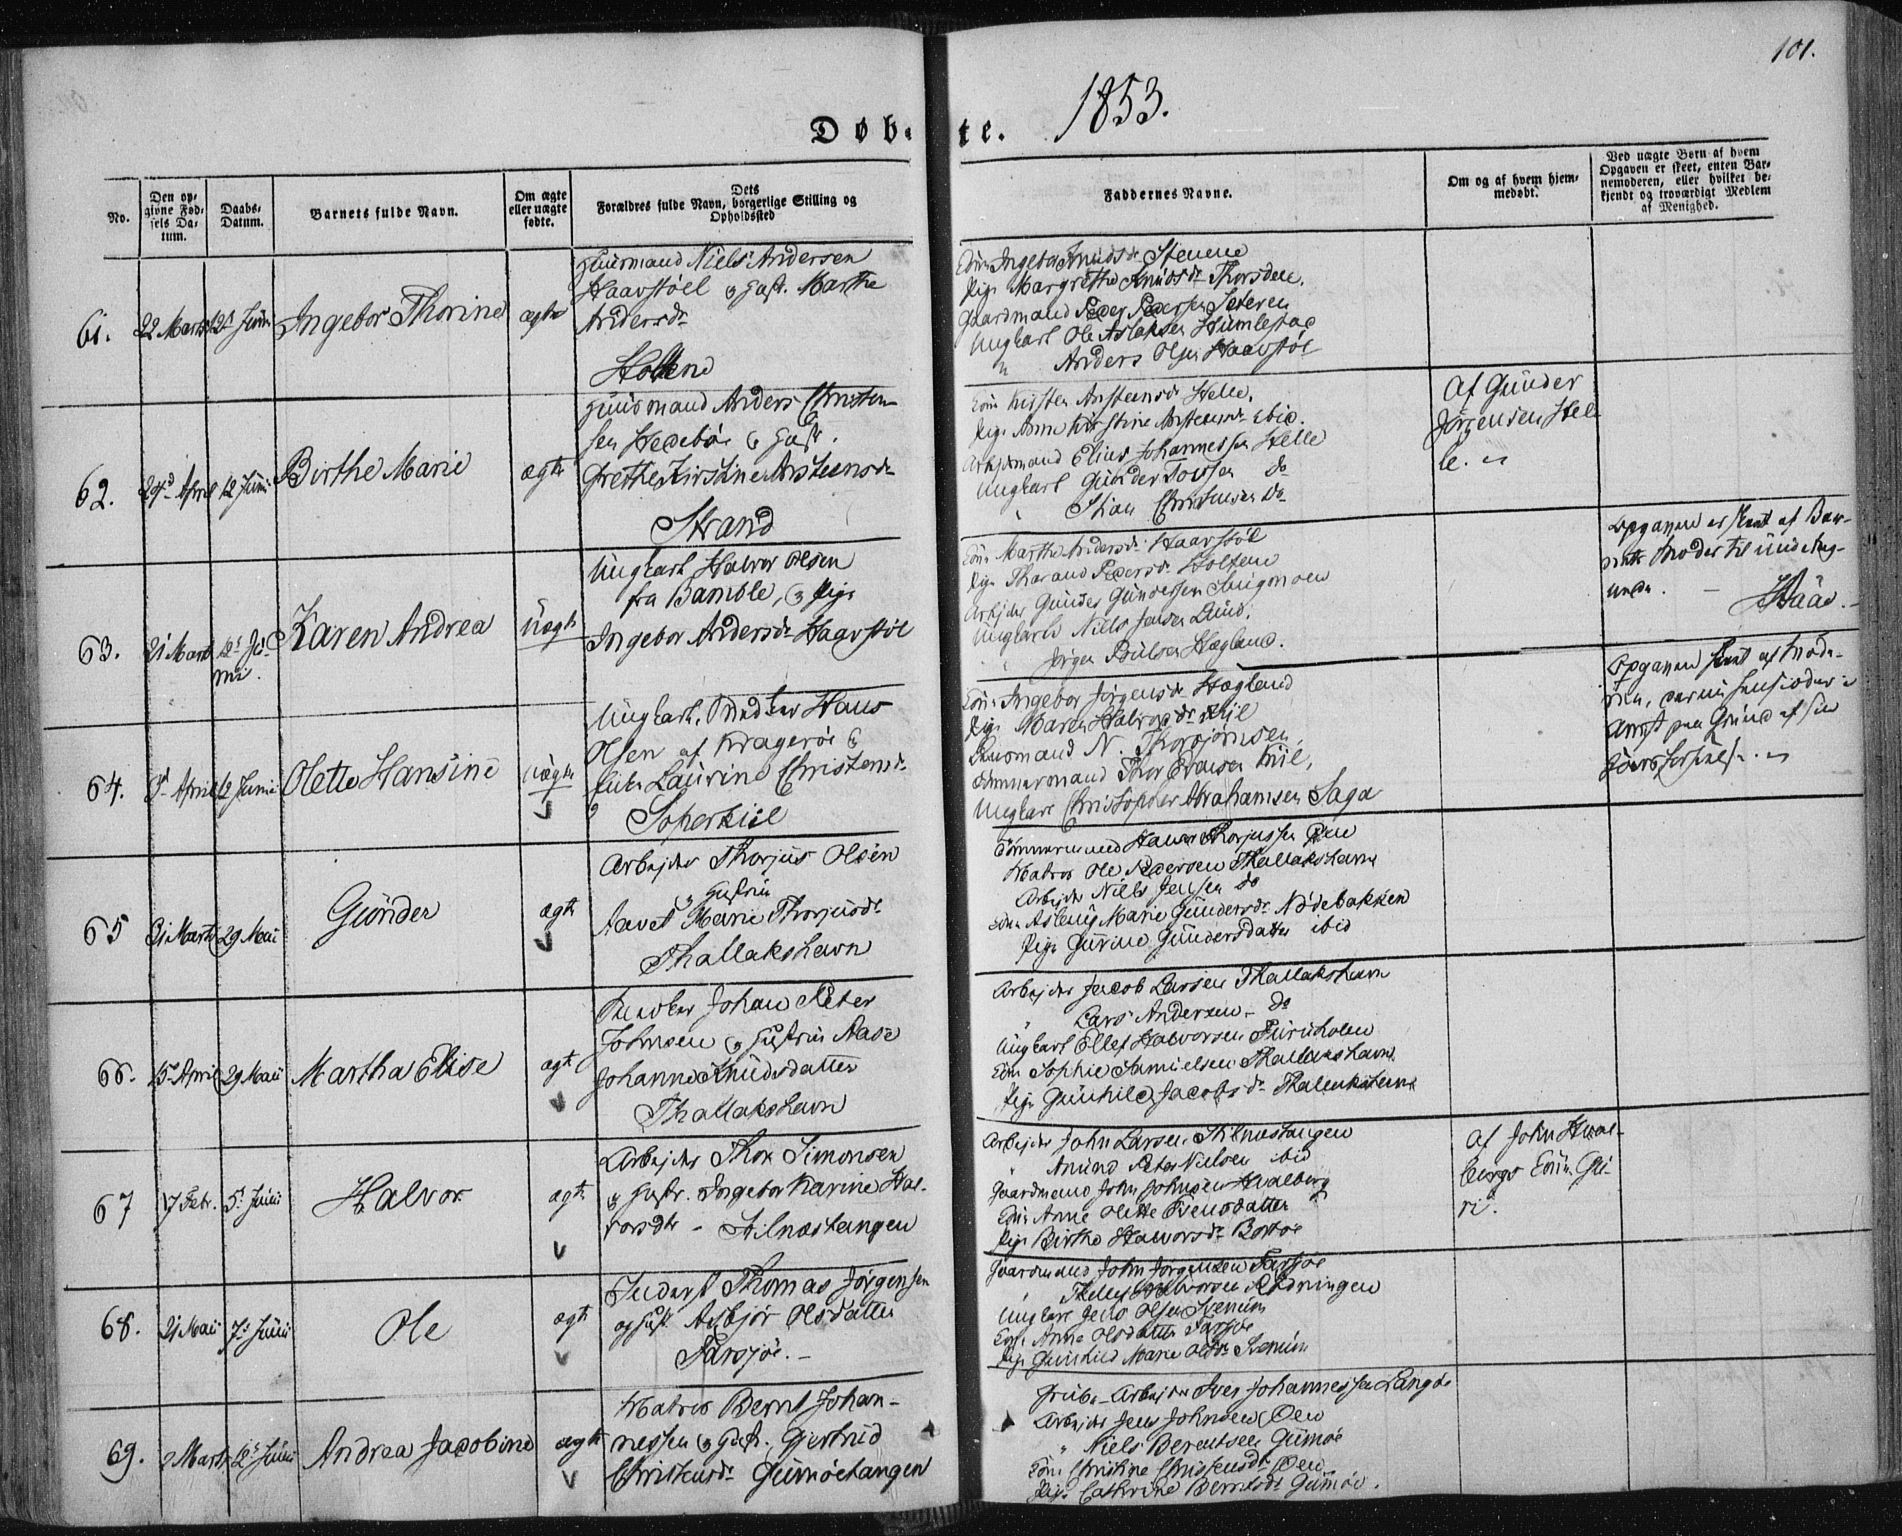 101.
1853.
Døb- te.
No.
Den op-
givne Fød-
sels Da-
tum.
Daabs-
Datum.
Barnets fulde Navn.
Om ægte
eller uægte
fødte.
Dets
Forældres fulde Navn, borgerlige Stilling og
Opholdssted
Faddernes Navne.
Om og af hvem hjem-
medøbt.
Ved uægte Børn af hvem
Opgaven er skeet, enten Bar-
nemoderen, eller hvilket be-
kjendt og troværdigt Medlem
af Menighed.
61.
22 Marts
12 Juni
Ingebor Thorine
ægte
Huusmand Niels Andersen
Haavstøel og Hustr. Marthe
Andersdr
Holtene
Kone Ingebor Knudsdr Stenene
Pige Margrethe Knudsdr Thorsdal
Gaardmand Peder Pedersen Sæteren
Ungkarl Ole Aslaksen Humlestad
" Anders Olsen Haavstøl
62.
24d April
12 Juni
Birthe Marie
ægte
Huusmand Anders Christen-
sen Hedebøe og Hustr.
Grethe Kirstine Anstensdr
Strand
Kone Kirsten Anstensdr Helle,
Pige Anne Kirstine Anstensdr ibid.
Arbjdsmand Elias Johannessen Helle
Ungkarl Gunder Tovsen do
" Stian Christensen do
Af Gunder
Jørgensen Hel
le.
63.
21 Marts
12 Ju-
ni.
Karen Andrea
Uægte
Ungkarl Halvor Olsen
fra Bamble, og Pige
Ingebor Andersdr Haavstøl
Kone Marthe Andersdr Haavstøl
Pige Tharand Pedersdr Holtene
Arbejder Gunder Gundersen
Ungkarl Niels Jensen Lund.
" Jørgen Poulsen Hegland.
Opgaven er skeet af Bar-
nets Moder til undeteg-
nede.
Haae.
64.
3d April
12 Juni
Olette Hansine
Uægte
Ungkarl, Snedker Hans
Olsen af Kragerøe &
Pike Laurine Christensdr
Soperkiil
Kone Ingebor Jørgensdr Hegland
Pige Maren Halvorsdr Kiil
Huusmand N. Thorbjørnsen,
Tømmermand Thor Evensen Kiil,
Ungkarl Christopher Abrahamsen Saga
Opgaven skeet af Mode-
ren,
Arrest paa Grund af sin
65
21 Marts
29 Maii
Gunder
ægte
Arbejder Thorjus Olsen
& Hustru
Aavet Marie Thorjusdr
Thallakshavn
Tømmermand Hans Thorjussen Øen
Matros Ole Pedersen Thallakshavn
Arbejder Niels Jensen do
Kone Aslaug Marie Gundersdr Nødebakken
Pige Gurine Gundersdatter ibid
66.
15 April
29 Maii
Martha Elise
ægte
Johan Peter
Johnsen og Hustru Aase
Johanne Knudsdatter
Thallakshavn
Arbejder Jacob Larsen Thallakshavn
" Lars Andersen do
Ungkarl Ellef Halvorsen Furuholm
Kone Sophie Samuelsen Thallakshavn
Pige Gunhild Jacobsdr Thallakshavn
67
17 Febr.
5 Junii
Halvor
ægte
Arbejder Thor Simonsen
& Hustr. Ingebor Karine Hal-
vorsdtr - Stilnæstangen
Arbejder John Larsen Stilnæstangen
" Amund Peter Nielsen ibid
Gaardmand John Johnsen Hvalberg
Kone Anne Olette Svensdatter
Pige Birthe Halvorsdr Bostøe
Af John Hval-
bergs Kone Gu-
ri.
68.
21 Maii
7 Junii
Ole
ægte
Inderst Thomas Jørgensen
og Hust. Asbjør Olsdatter
Farsjøe.
Gaardmand John Jørgensen Farsjøe
" Thellef Halvorsen Rødningen
Ungkarl Jens Olsen Svenum
Kone Anne Olsdatter Farsjøe
Pige Gunhild Marie Olsdr Svenum
69.
2 Marts
12 Junii
Andrea Jacobine
ægte
Matros Bernt Johan-
nessen og Hustr. Gjertrud
Christensdr Gumøetangen
Arbejder Iver Johannessen Langøe
Arbejder Jens Johnsen Øen
" Niels Berentsen Gumøe
Kone Christine Christensdr Øen
Pige Cathrine Berntsdr Gumøe.